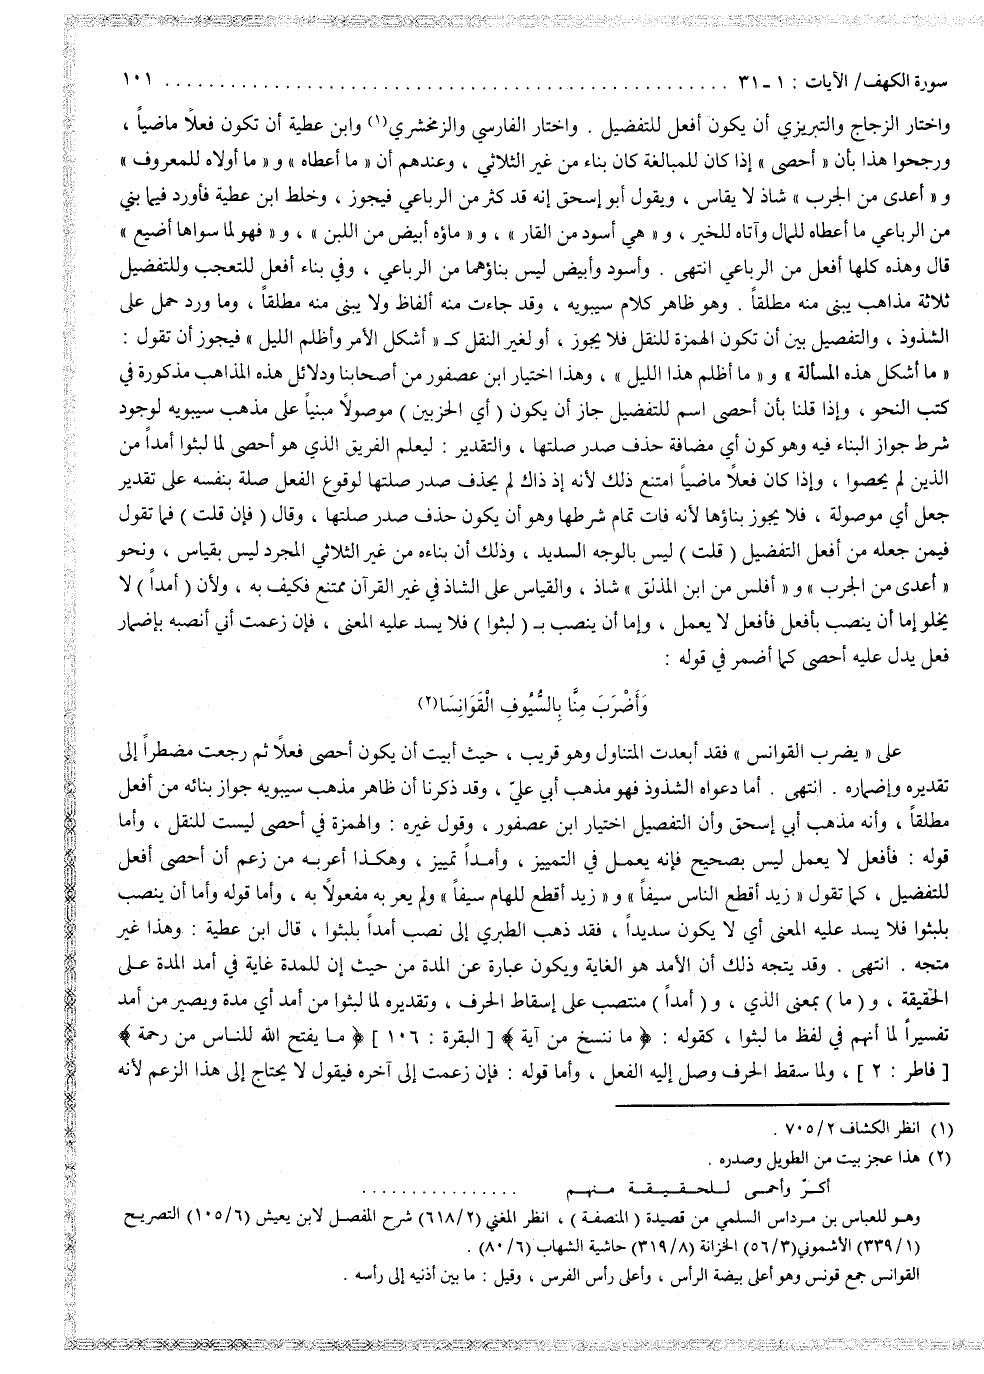 سورة الكهف/ الآيات : ١ ـ ٣١ . . . . . . . . . . . . . . . . . . . . . . . . . . . . . . . . . . . . . . . . ١٠١
واختار الزجاج والتبريزي أن يكون أفعل للتفضيل . واختار الفارسي والزمخشري(١) وابن عطية أن تكون فعلاً ماضياً ،
ورجحوا هذا بأن « أحصى » إذا كان للمبالغة كان بناء من غير الثلاثي ، وعندهم أن « ما أعطاه » و « ما أولاه للمعروف »
و « أعدى من الجرب » شاذ لا يقاس ، ويقول أبو إسحق إنه قد كثر من الرباعي فيجوز ، وخلط ابن عطية فأورد فيما بني
من الرباعي ما أعطاه للمال وآتاه للخير ، و « هي أسود من القار » ، و « ماؤه أبيض من اللبن » ، و « فهو لما سواها أضيع »
قال وهذه كلها أفعل من الرباعي انتهى . وأسود وأبيض ليس بناؤهما من الرباعي ، وفي بناء أفعل للتعجب وللتفضيل
ثلاثة مذاهب يبنى منه مطلقاً . وهو ظاهر كلام سيبويه ، وقد جاءت منه ألفاظ ولا يبنى منه مطلقاً ، وما ورد حمل على
الشذوذ ، والتفصيل بين أن تكون الهمزة للنقل فلا يجوز ، أو لغير النقل كـ « أشكل الأمر وأظلم الليل » فيجوز أن تقول :
« ما أشكل هذه المسألة » و « ما أظلم هذا الليل » ، وهذا اختيار ابن عصفور من أصحابنا ودلائل هذه المذاهب مذكورة في
كتب النحو ، وإذا قلنا بأن أحصى اسم للتفضيل جاز أن يكون ( أي الحزبين ) موصولاً مبنياً على مذهب سيبويه لوجود
شرط جواز البناء فيه وهو كون أي مضافة حذف صدر صلتها ، والتقدير : ليعلم الفريق الذي هو أحصى لما لبثوا أمداً من
الذين لم يحصوا ، وإذا كان فعلاً ماضياً امتنع ذلك لأنه إذ ذاك لم يحذف صدر صلتها لوقوع الفعل صلة بنفسه على تقدير
جعل أي موصولة ، فلا يجوز بناؤها لأنه فات تمام شرطها وهو أن يكون حذف صدر صلتها ، وقال ( فإن قلت ) فما تقول
فيمن جعله من أفعل التفضيل ( قلت ) ليس بالوجه السديد ، وذلك أن بناءه من غير الثلاثي المجرد ليس بقياس ، ونحو
« أعدى من الجرب » و « أفلس من ابن المذلق » شاذ ، والقياس على الشاذ في غير القرآن ممتنع فكيف به ، ولأن ( أمداً ) لا
يخلو إما أن ينصب بأفعل فأفعل لا يعمل ، وإما أن ينصب بـ ( لبثوا ) فلا يسد عليه المعنى ، فإن زعمت أني أنصبه بإضمار
فعل يدل عليه أحصى كما أضمر في قوله :
وَأَضْرَبَ مِنَّا بِالسُّيُوفِ الْقَوَانِسَا(٢)
على « يضرب القوانس » فقد أبعدت المتناول وهو قريب ، حيث أبيت أن يكون أحصى فعلاً ثم رجعت مضطراً إلى
تقديره وإضماره . انتهى . أما دعواه الشذوذ فهو مذهب أبي عليّ ، وقد ذكرنا أن ظاهر مذهب سيبويه جواز بنائه من أفعل
مطلقاً ، وأنه مذهب أبي إسحق وأن التفصيل اختيار ابن عصفور ، وقول غيره : والهمزة في أحصى ليست للنقل ، وأما
قوله : فأفعل لا يعمل ليس بصحيح فإنه يعمل في التمييز ، وأمداً تمييز ، وهكذا أعربه من زعم أن أحصى أفعل
للتفضيل ، كما تقول « زيد أقطع الناس سيفاً » و « زيد أقطع للهام سيفاً » ولم يعربه مفعولاً به ، وأما قوله وأما أن ينصب
بلبثوا فلا يسد عليه المعنى أي لا يكون سديداً ، فقد ذهب الطبري إلى نصب أمداً بلبثوا ، قال ابن عطية : وهذا غير
متجه . انتهى . وقد يتجه ذلك أن الأمد هو الغاية ويكون عبارة عن المدة من حيث إن للمدة غاية في أمد المدة على
الحقيقة ، و ( ما ) بمعنى الذي ، و ( أمداً ) منتصب على إسقاط الحرف ، وتقديره لما لبثوا من أمد أي مدة ويصير من أمد
تفسيراً لما أنهم في لفظ ما لبثوا ، كقوله : ﴿ ما ننسخ من آية ﴾ [ البقرة : ١٠٦ ] ﴿ ما يفتح الله للناس من رحمة ﴾
[ فاطر : ٢ ] ، ولما سقط الحرف وصل إليه الفعل ، وأما قوله : فإن زعمت إلى آخره فيقول لا يحتاج إلى هذا الزعم لأنه
(١) انظر الكشاف ٧٠٥/٢ .
(٢) هذا عجز بيت من الطويل وصدره .
أكرّ وأحمى للحقيقة منهم . . . . . . . . . . . . . . . .
وهو للعباس بن مرداس السلمي من قصيدة ( المنصفة ) ، انظر المغني (٦١٨/٢) شرح المفصل لابن يعيش (١٠٥/٦) التصريح
(٣٣٩/١) الأشموني(٥٦/٣) الخزانة (٣١٩/٨) حاشية الشهاب (٨٠/٦) .
القوانس جمع قونس وهو أعلى بيضة الرأس ، وأعلى رأس الفرس ، وقيل : ما بين أذنيه إلى رأسه .